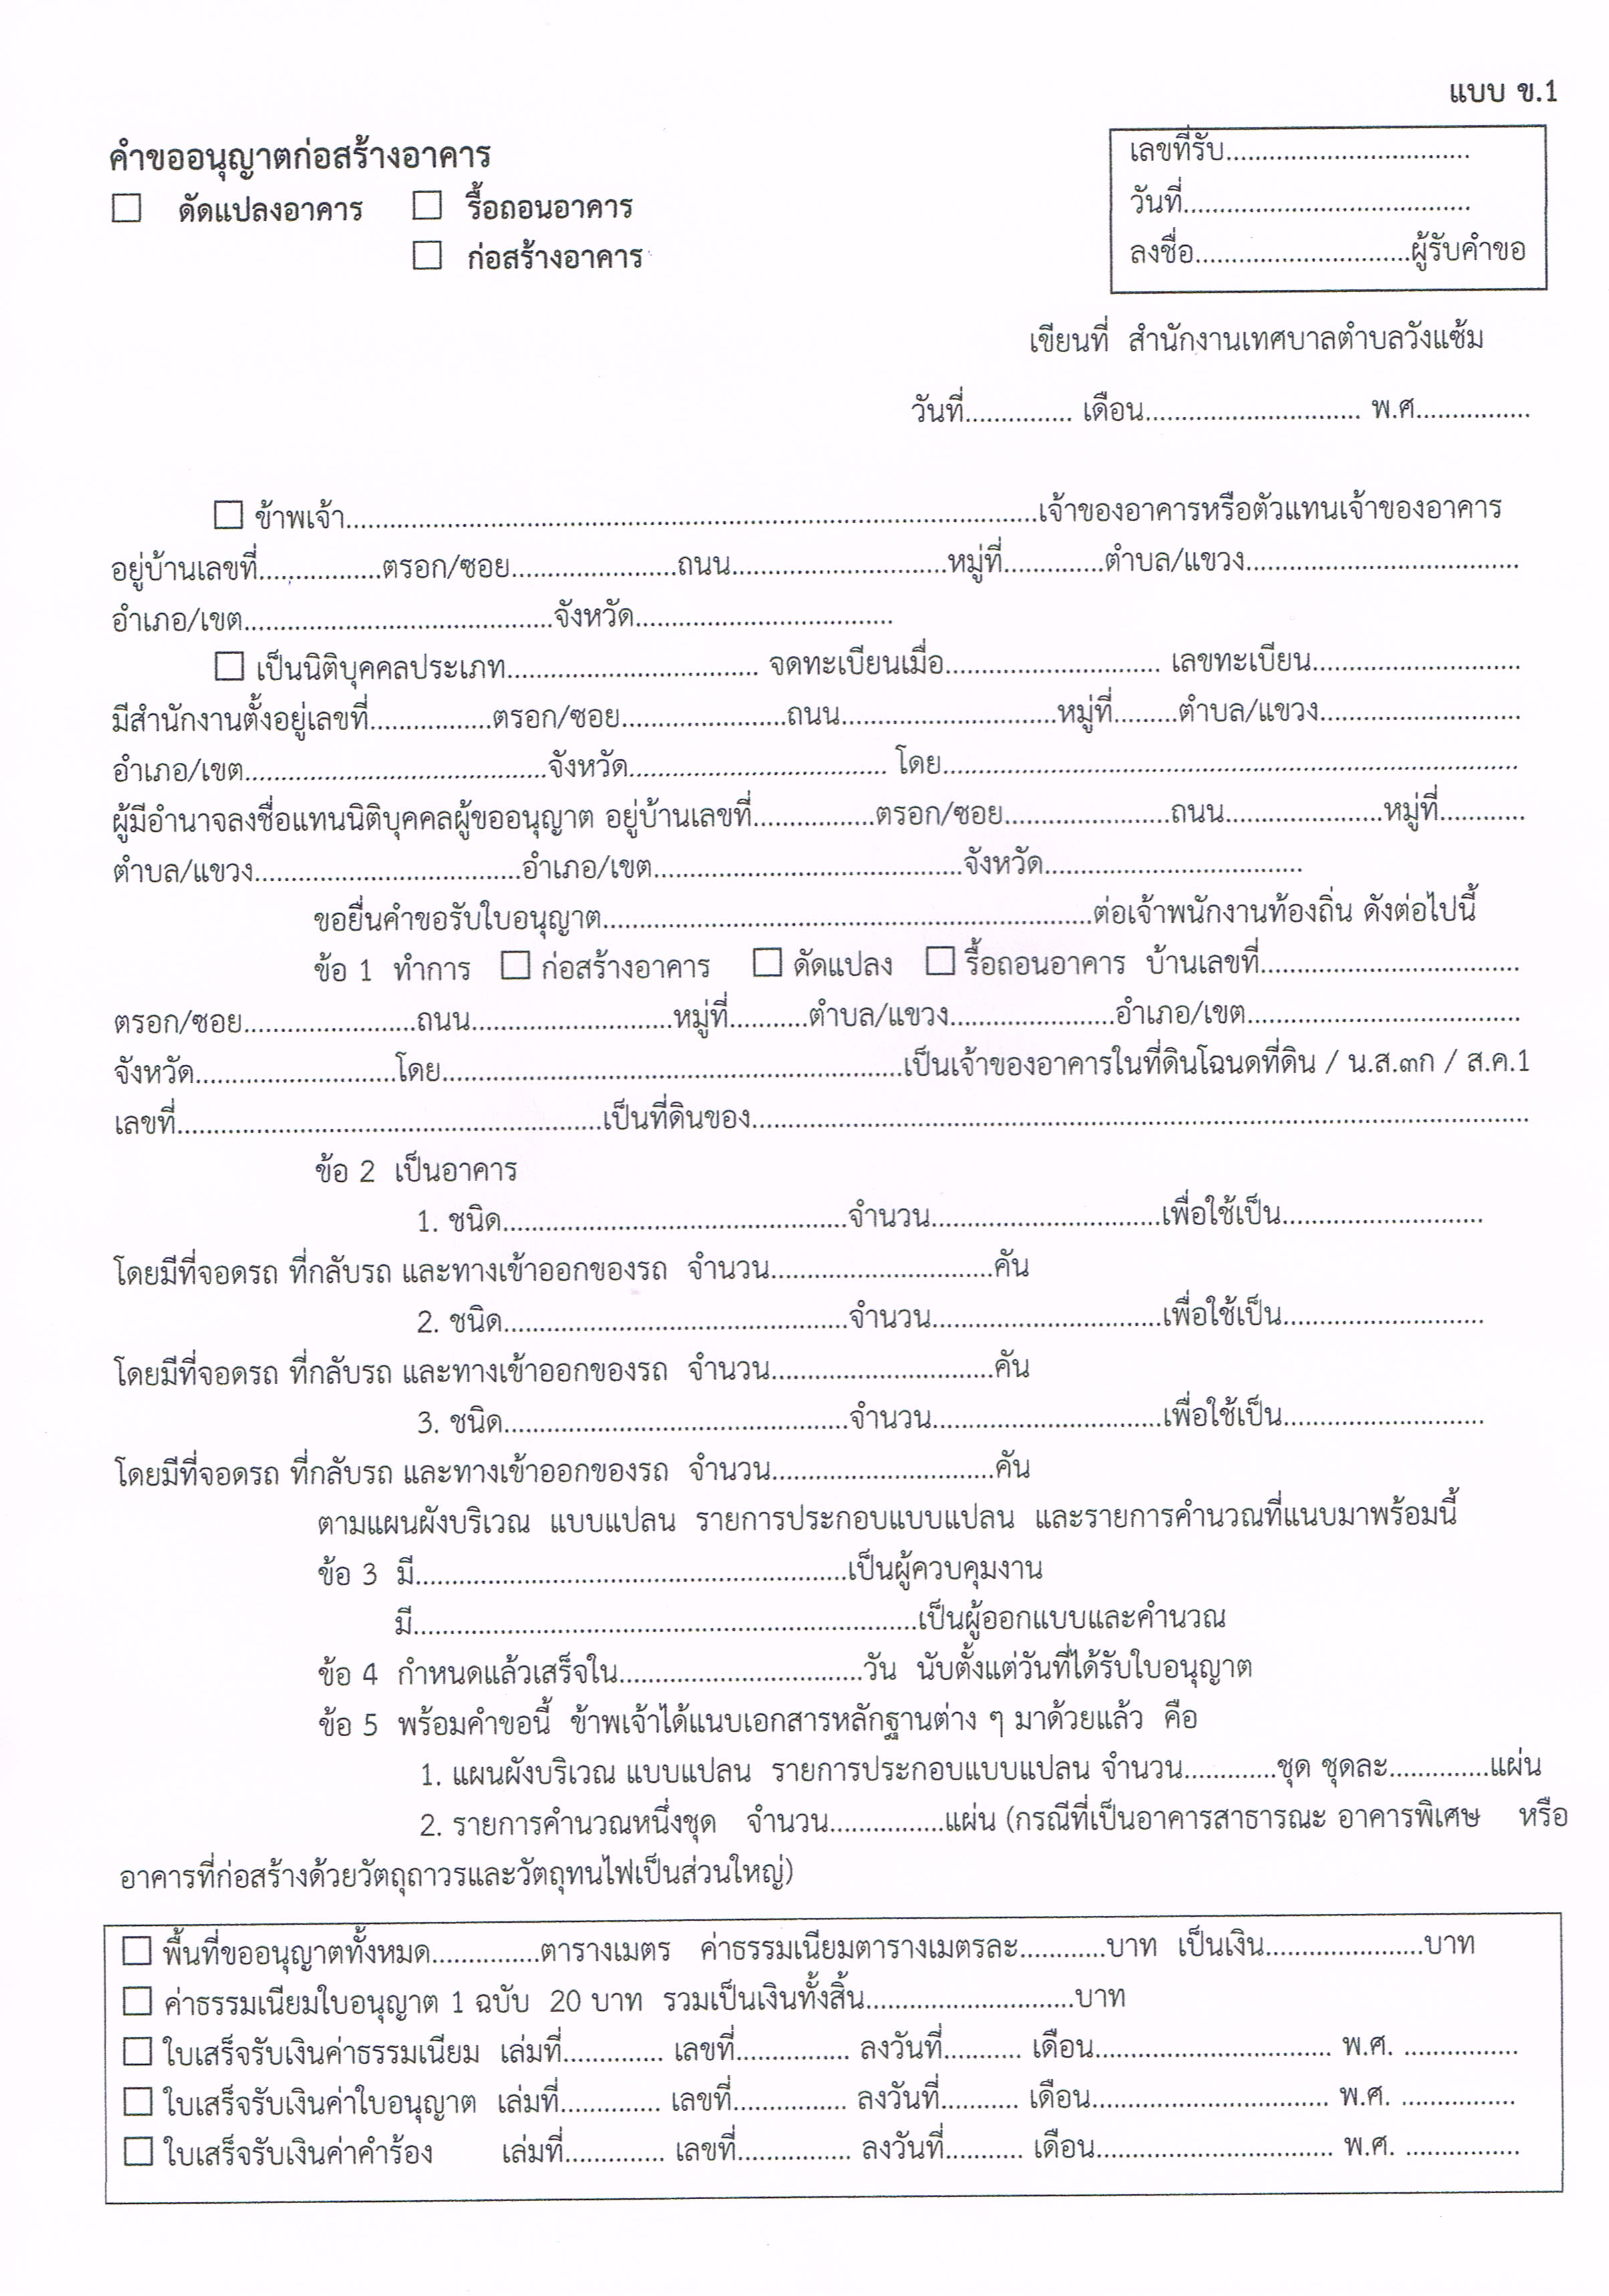 แบบ ข.1
คำขออนุญาตก่อสร้างอาคาร
☐ ดัดแปลงอาคาร ☐ รื้อถอนอาคาร
☐ ก่อสร้างอาคาร
เลขที่รับ..................................
วันที่........................................
ลงชื่อ..............................ผู้รับคำขอ
เขียนที่ สำนักงานเทศบาลตำบลวังแซ้ม
วันที่............... เดือน.............................. พ.ศ................
☐ ข้าพเจ้า................................................................................................เจ้าของอาคารหรือตัวแทนเจ้าของอาคาร
อยู่บ้านเลขที่.................ตรอก/ซอย.......................ถนน..............................หมู่ที่..............ตำบล/แขวง......................................
อำเภอ/เขต...........................................จังหวัด....................................
☐ เป็นนิติบุคคลประเภท................................... จดทะเบียนเมื่อ.............................. เลขทะเบียน.............................
มีสำนักงานตั้งอยู่เลขที่.................ตรอก/ซอย.......................ถนน..............................หมู่ที่.........ตำบล/แขวง............................
อำเภอ/เขต..........................................จังหวัด.................................... โดย................................................................................
ผู้มีอำนาจลงชื่อแทนนิติบุคคลผู้ขออนุญาต อยู่บ้านเลขที่.................ตรอก/ซอย.......................ถนน......................หมู่ที่............
ตำบล/แขวง.....................................อำเภอ/เขต...........................................จังหวัด....................................
ขอยื่นคำขอรับใบอนุญาต....................................................................ต่อเจ้าพนักงานท้องถิ่น ดังต่อไปนี้
ข้อ 1 ทำการ ☐ ก่อสร้างอาคาร ☐ ดัดแปลง ☐ รื้อถอนอาคาร บ้านเลขที่....................................
ตรอก/ซอย........................ถนน............................หมู่ที่...........ตำบล/แขวง.......................อำเภอ/เขต......................................
จังหวัด............................โดย................................................................เป็นเจ้าของอาคารในที่ดินโฉนดที่ดิน / น.ส.๓ก / ส.ค.1
เลขที่...........................................................เป็นที่ดินของ............................................................................................................
ข้อ 2 เป็นอาคาร
1. ชนิด................................................จำนวน................................เพื่อใช้เป็น............................
โดยมีที่จอดรถ ที่กลับรถ และทางเข้าออกของรถ จำนวน...............................คัน
2. ชนิด................................................จำนวน................................เพื่อใช้เป็น............................
โดยมีที่จอดรถ ที่กลับรถ และทางเข้าออกของรถ จำนวน...............................คัน
3. ชนิด................................................จำนวน................................เพื่อใช้เป็น............................
โดยมีที่จอดรถ ที่กลับรถ และทางเข้าออกของรถ จำนวน...............................คัน
ตามแผนผังบริเวณ แบบแปลน รายการประกอบแบบแปลน และรายการคำนวณที่แนบมาพร้อมนี้
ข้อ 3 มี............................................................เป็นผู้ควบคุมงาน
มี......................................................................เป็นผู้ออกแบบและคำนวณ
ข้อ 4 กำหนดแล้วเสร็จใน..................................วัน นับตั้งแต่วันที่ได้รับใบอนุญาต
ข้อ 5 พร้อมคำขอนี้ ข้าพเจ้าได้แนบเอกสารหลักฐานต่าง ๆ มาด้วยแล้ว คือ
1. แผนผังบริเวณ แบบแปลน รายการประกอบแบบแปลน จำนวน.............ชุด ชุดละ..............แผ่น
2. รายการคำนวณหนึ่งชุด จำนวน................แผ่น (กรณีที่เป็นอาคารสาธารณะ อาคารพิเศษ หรือ
อาคารที่ก่อสร้างด้วยวัตถุถาวรและวัตถุทนไฟเป็นส่วนใหญ่)
☐ พื้นที่ขออนุญาตทั้งหมด...............ตารางเมตร ค่าธรรมเนียมตารางเมตรละ............บาท เป็นเงิน......................บาท
☐ ค่าธรรมเนียมใบอนุญาต 1 ฉบับ 20 บาท รวมเป็นเงินทั้งสิ้น.............................บาท
☐ ใบเสร็จรับเงินค่าธรรมเนียม เล่มที่.............. เลขที่................ ลงวันที่........... เดือน................................. พ.ศ. ................
☐ ใบเสร็จรับเงินค่าใบอนุญาต เล่มที่.............. เลขที่................ ลงวันที่........... เดือน................................. พ.ศ. ................
☐ ใบเสร็จรับเงินค่าคำร้อง เล่มที่.............. เลขที่................ ลงวันที่........... เดือน................................. พ.ศ. ................